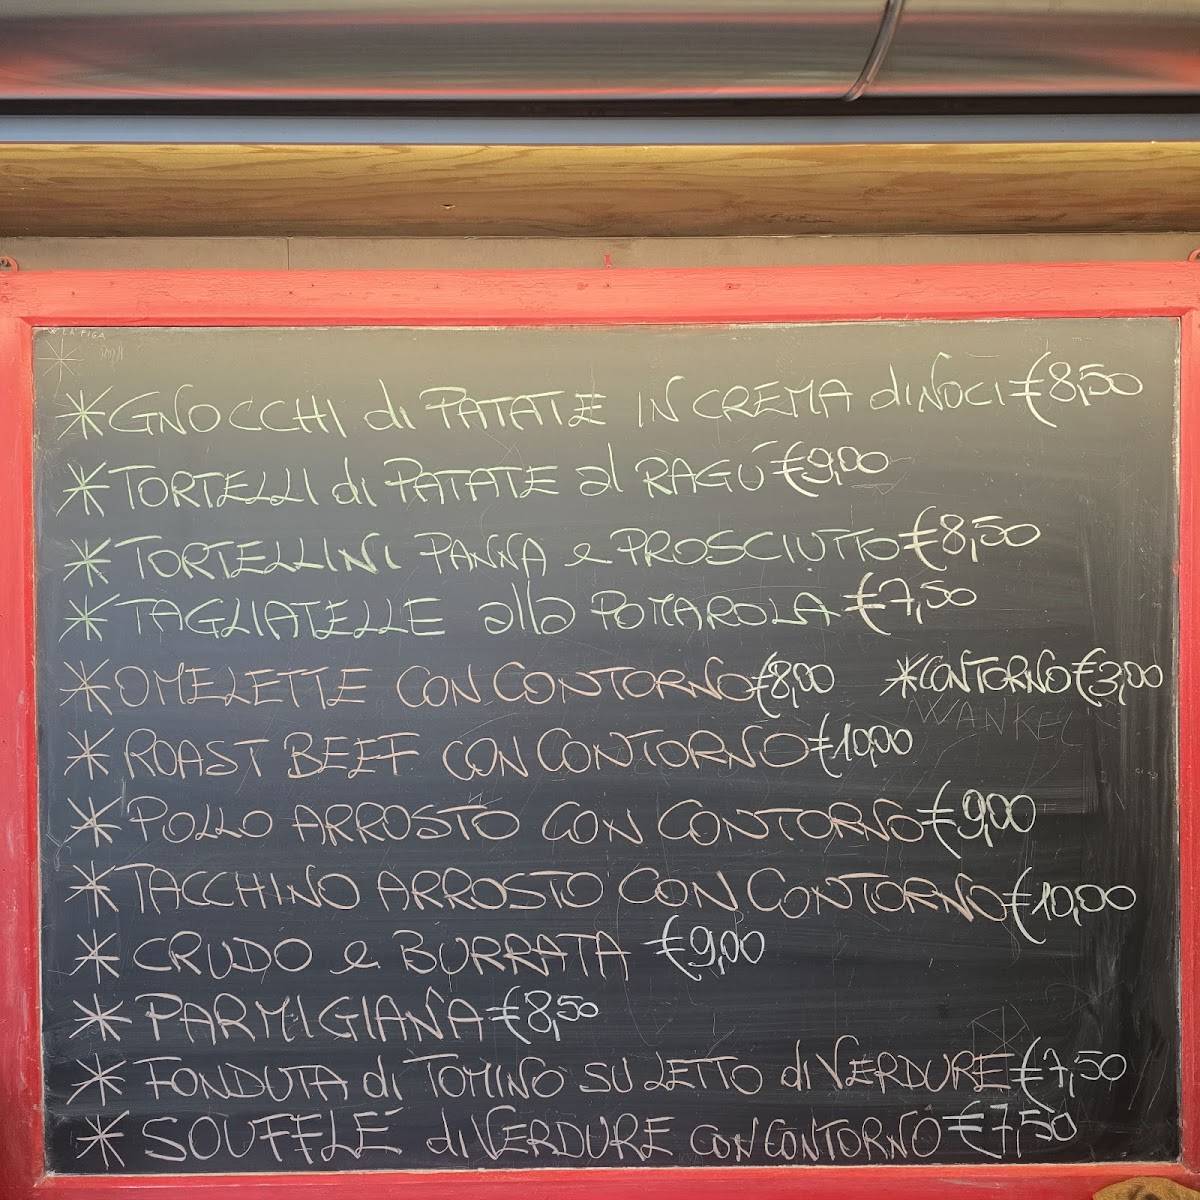 LA FIGA
*GNOCCHI di PATATE IN CREMA di NOCI €8,50
*TORTELLI di PATATE al RAGÚ €9,00
*TORTELLINI PANNA e PROSCIUTTO €8,50
*TAGLIATELLE alla POMAROLA €7,50
*OMELETTE CON CONTORNO €8,00 *CONTORNO €3,00
WANKEL
*ROAST BEEF CON CONTORNO €10,00
*POLLO ARROSTO CON CONTORNO €9,00
*TACCHINO ARROSTO CON CONTORNO €10,00
*CRUDO e BURRATA €9,00
*PARMIGIANA €8,50
*FONDUTA di TOMINO SU LETTO di VERDURE €7,50
*SOUFFLÉ di VERDURE CON CONTORNO €7,50